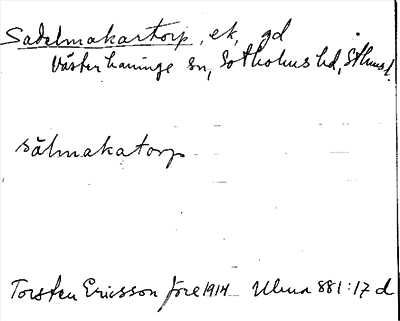 Sadelmakartorp, ek, gd
Västerhaninge sn, Sotholms hd, Sthms l.
sålmakatorp
Torsten Ericsson före 1914 Ulma 881:17 d